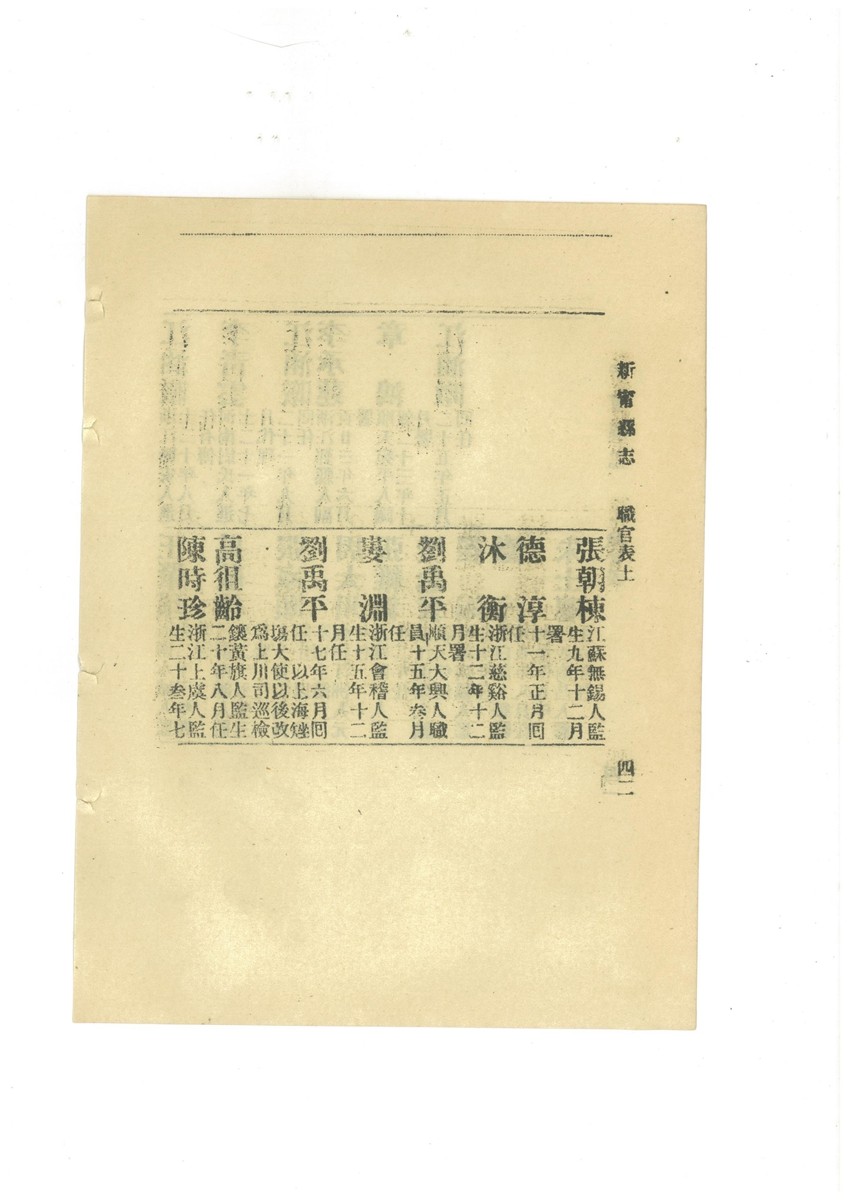 新甯縣志
職官表上
四二
張朝棟
江蘇無錫人監
生九年十二月
署
德淳
十一年正月囘
任
沐衡
浙江慈谿人監
生十二年十二
月署
劉禹平
順天大興人職
員十五年叁月
任
婁淵
浙江會稽人監
生十五年十二
月任
劉禹平
十七年六月囘
任以上海矬
塲大使以後改
爲上川司巡檢
高徂齡
鑲黃旗人監生
二十年八月任
陳時珍
浙江上虞人監
生二十叁年七